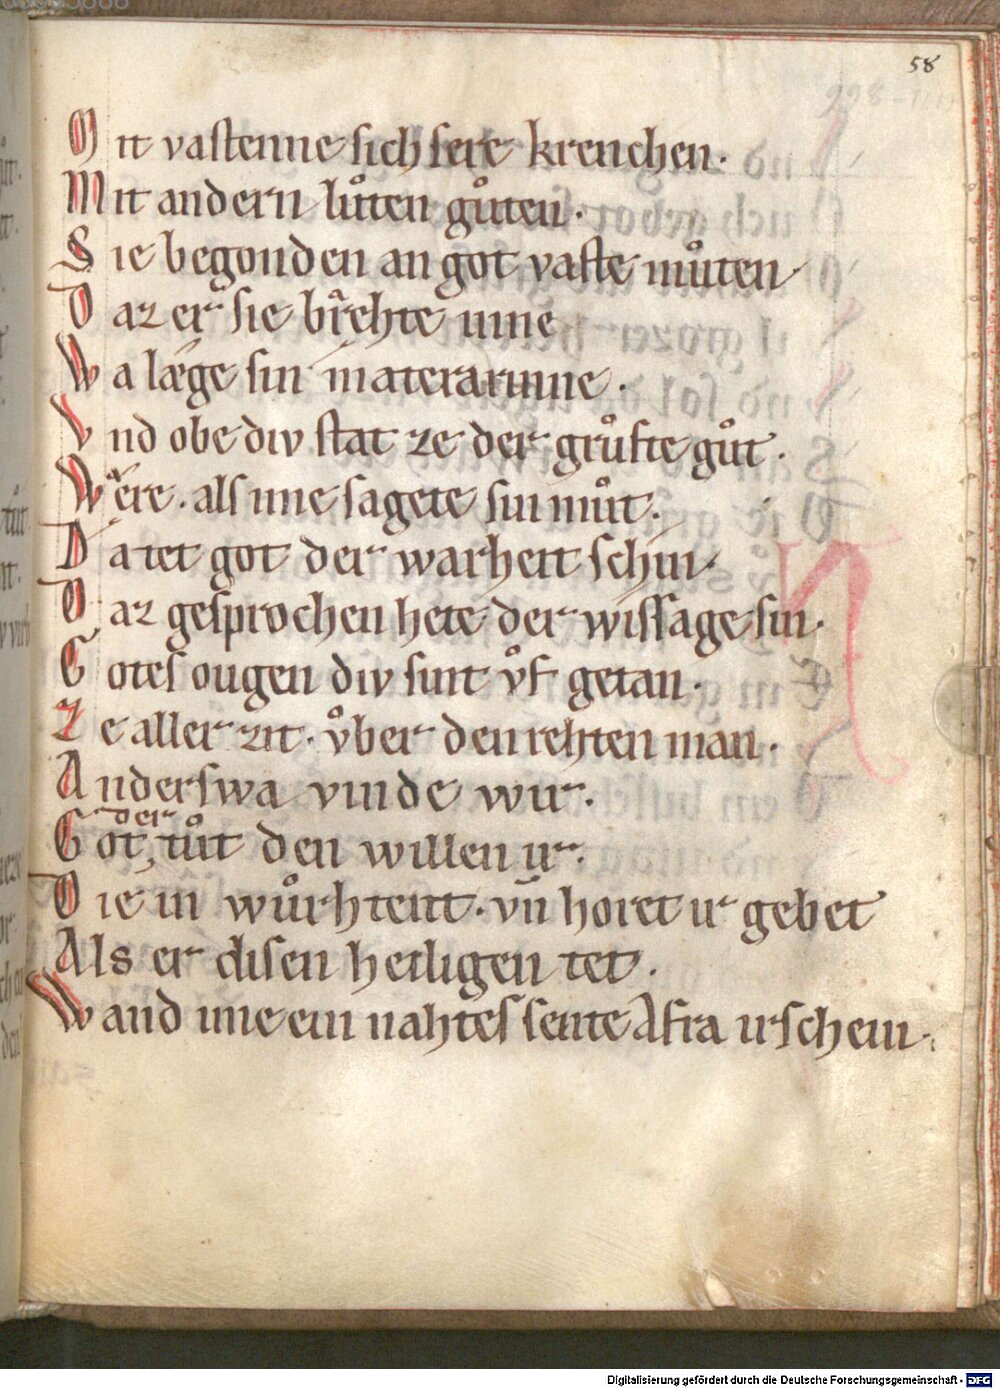 58
998-1011
Mit vastenne sich sere krenchen.
Mit andern lůten gůten.
Sie begonden an got vaste můten
Daz er sie brehte inne
Wa læge sin materarinne.
Vnd obe div stat ze der grůfte gůt.
Were. als ime sagete sin můt.
Da tet got der warheit schin.
Daz gesprochen hete der wissage sin.
Gotes ougen div sint vͦf getan.
Ze aller zit. vͦber den rehten man.
Anderswa vinde wir.
Got, der tůt den willen ir.
Die in wůrhtent. vn̄ horet ir gebet
Als er disen heiligen tet.
Wand ime ein nahtes sente Afra irschein.
Digitalisierung gefördert durch die Deutsche Forschungsgemeinschaft - DFG